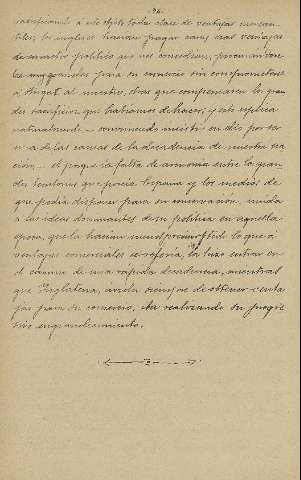 96.
sacrificando a ese objeto toda clase de ventajas mercan-
tiles; los ingleses hacían pagar caras esas ventajas
de carácter político que nos concedían, procurándose
las mayores para su comercio sin comprometerse
a otorgar al nuestro, otras que compensaran los gran-
des sacrificios que habíamos de hacer; y esto explica
naturalmente
una de las causas de la decadencia de nuestra na-
ción.- el porque la falta de armonía entre los gran-
des territorios que poseía España y los medios de
que podía disponer para su conservación, unida
a las ideas dominantes de su política en aquella
época, que la hacían menospreciar todo lo que a
ventajas comerciales se refería, la hizo entrar en
el camino de una rápida decadencia, mientras
que Inglaterra, ávida siempre de obtener venta-
jas para su comercio, iba realizando su progre-
sivo engrandecimiento.